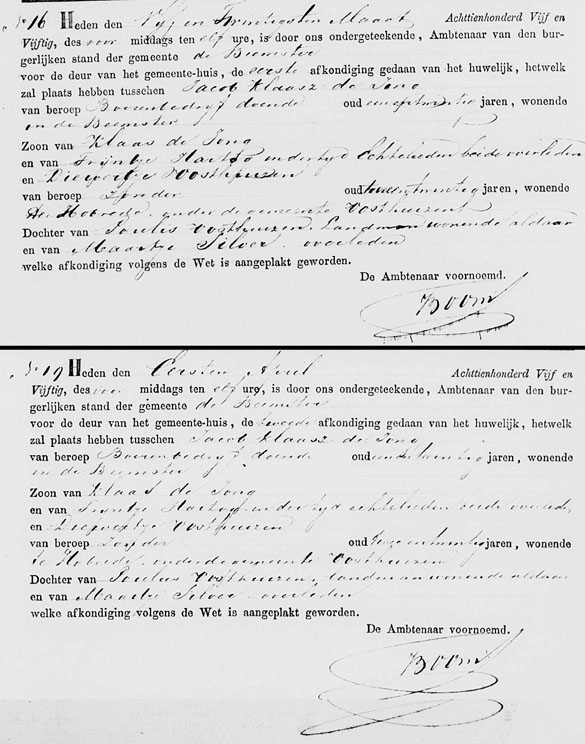 No 16 Heden den Vijf en Twintigsten Maart Achttienhonderd Vijf en
Vijftig, des voor middags ten elf ure, is door ons ondergeteekende, Ambtenaar van den bur-
gerlijken stand der gemeente de Beemster
voor de deur van het gemeente-huis, de eerste afkondiging gedaan van het huwelijk, hetwelk
zal plaats hebben tusschen Jacob Klaasz de Jong
van beroep Boerenbedrijf doende oud een en twintig jaren, wonende
in de Beemster
Zoon van Klaas de Jong
en van Trijntje Hartog in der tijd Echtelieden beide overleden
en Diewertje Oosthuizen
van beroep Zonder oud twee en twintig jaren, wonende
te Hobrede, onder de gemeente Oosthuizen
Dochter van Paulus Oosthuizen, Landman wonende aldaar
en van Maartje Silver overleden
welke afkondiging volgens de Wet is aangeplakt geworden.
De Ambtenaar voornoemd.
Boom
No 19 Heden den Eersten April Achttienhonderd Vijf en
Vijftig, des voor middags ten elf ure, is door ons ondergeteekende, Ambtenaar van den bur-
gerlijken stand der gemeente de Beemster
voor de deur van het gemeente-huis, de tweede afkondiging gedaan van het huwelijk, hetwelk
zal plaats hebben tusschen Jacob Klaasz de Jong
van beroep Boerenbedrijf doende oud een en twintig jaren, wonende
in de Beemster
Zoon van Klaas de Jong
en van Trijntje Hartog in der tijd echtelieden beide overleden
en Diewertje Oosthuizen
van beroep Zonder oud twee en twintig jaren, wonende
te Hobrede, onder de gemeente Oosthuizen
Dochter van Paulus Oosthuizen, landman wonende aldaar
en van Maartje Silver overleden
welke afkondiging volgens de Wet is aangeplakt geworden.
De Ambtenaar voornoemd.
Boom